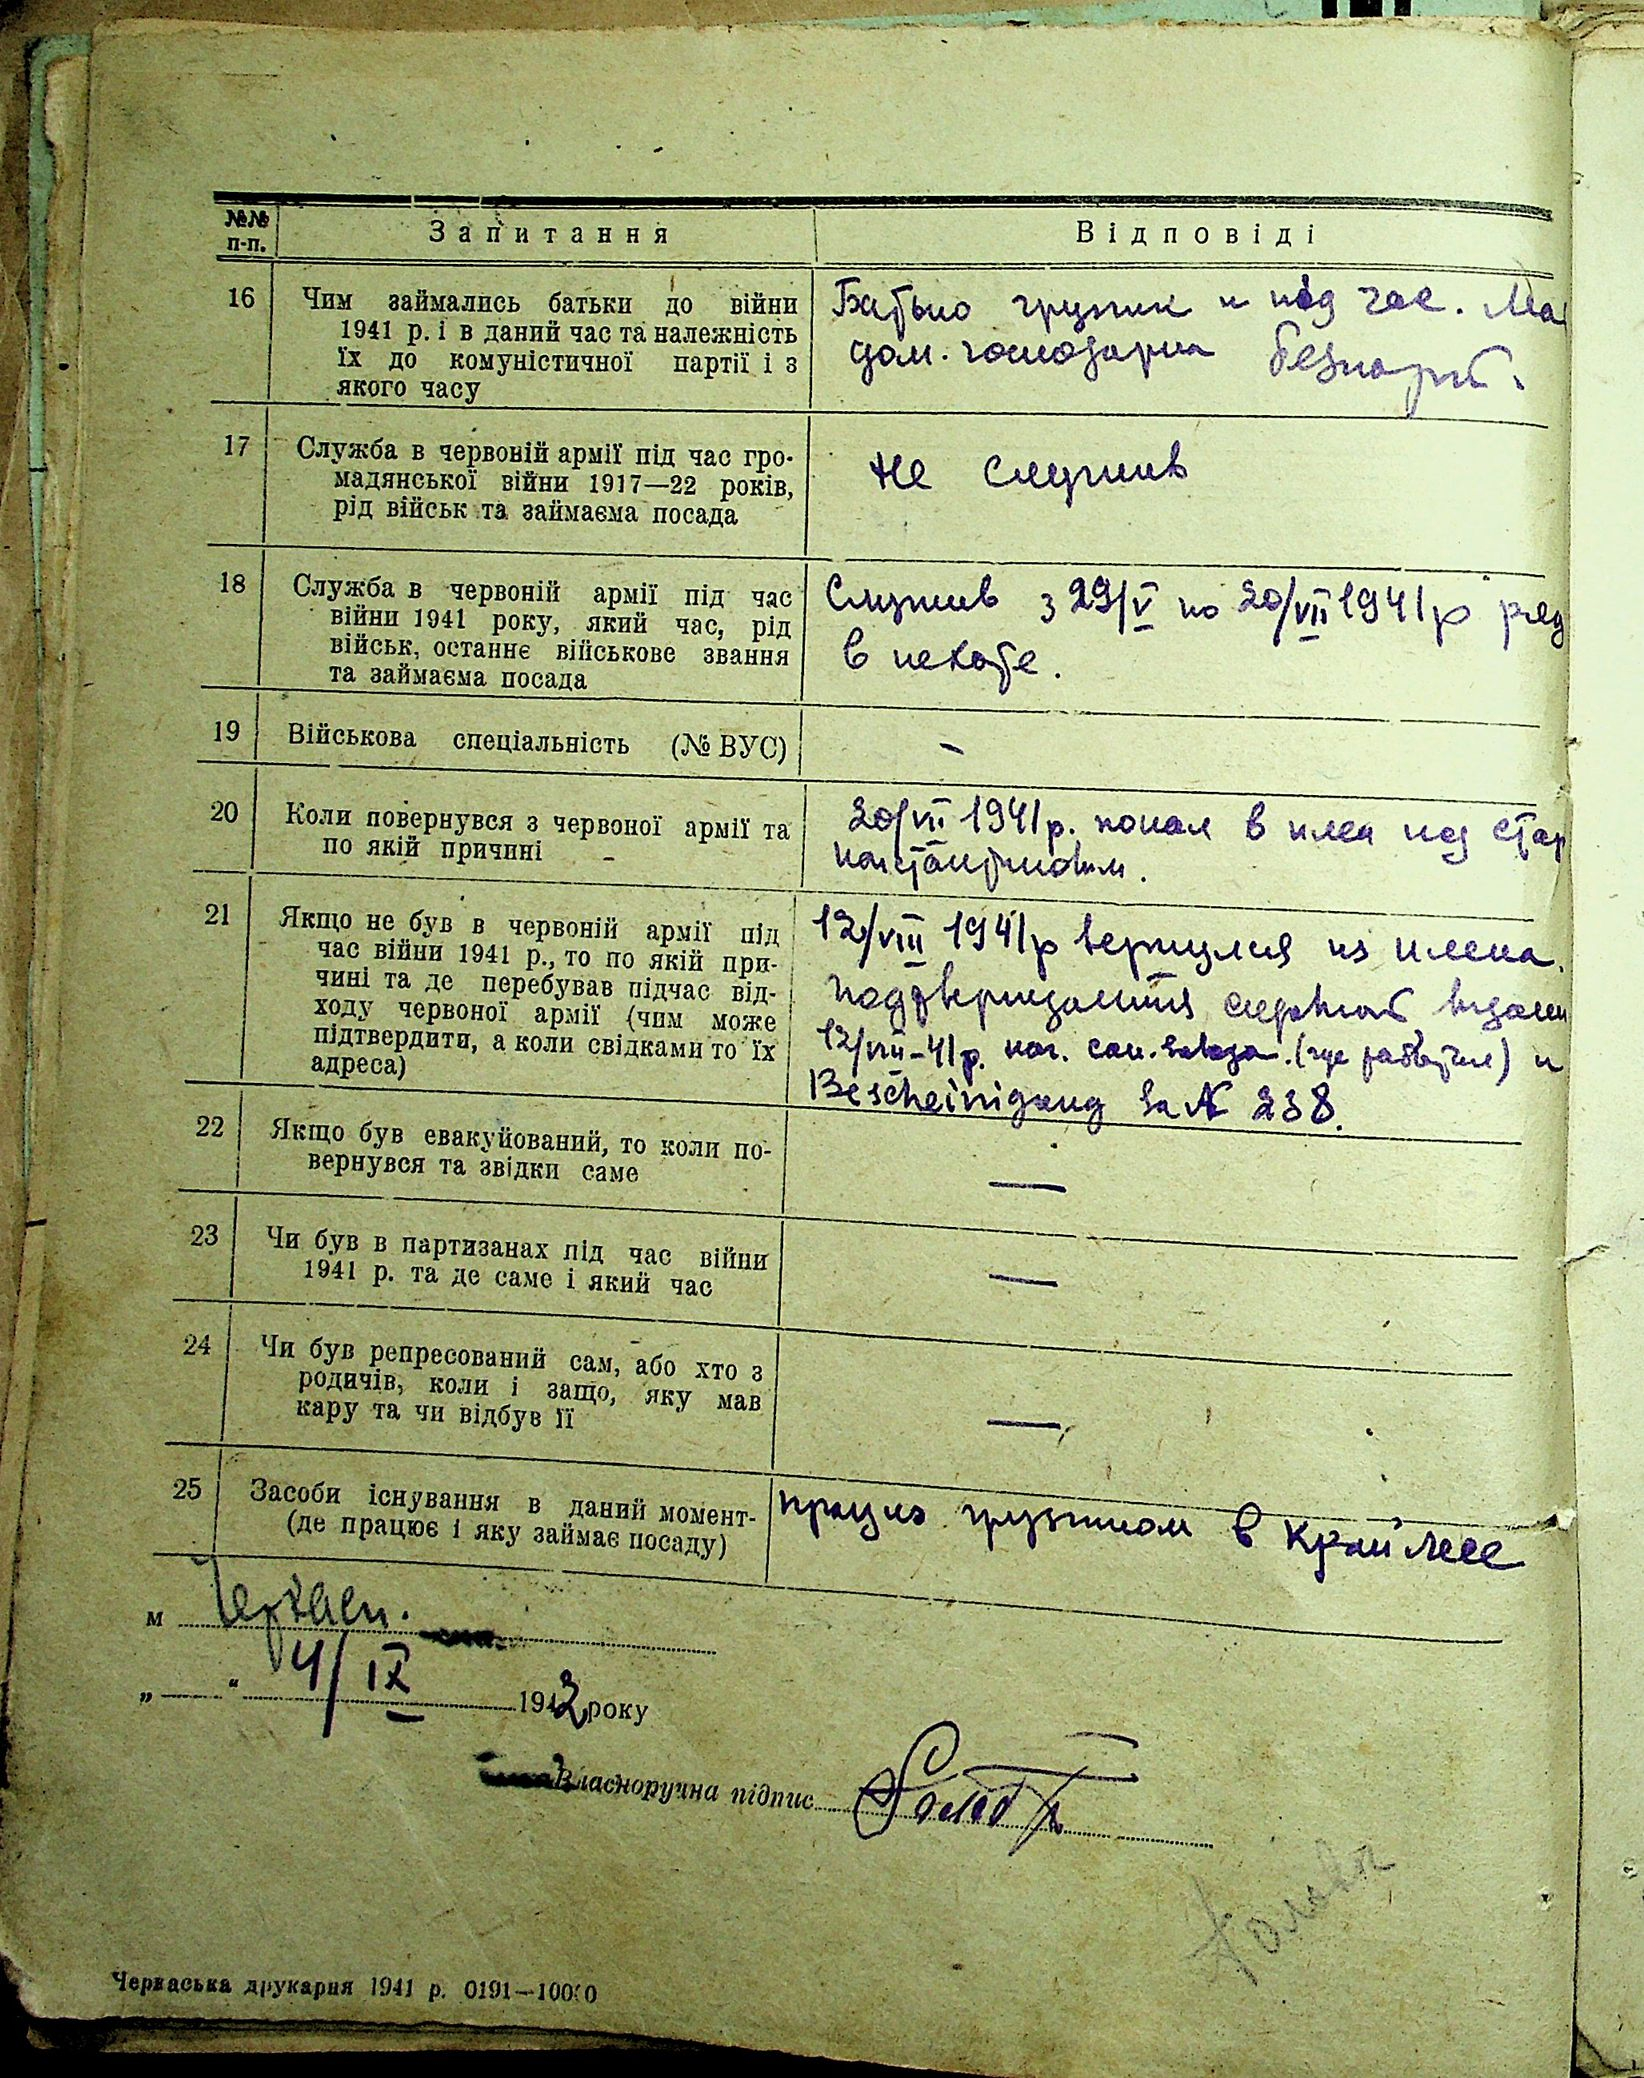 №№ п-п.
Запитання
Відповіді
16
Чим займались батьки до війни
1941 р. і в даний час та належність
їх до комуністичної партії і з
якого часу
Батько грузчик и під час. Ма
дом. господарка безпарт.
17
Служба в червоній армії під час гро-
мадянської війни 1917—22 років,
рід військ та займаєма посада
Не служив
18
Служба в червоній армії під час
війни 1941 року, який час, рід
військ, останнє військове звання
та займаєма посада
Служив з 29/V по 20/VII 1941 р ряд
в пехоте.
19
Військова спеціальність (№ ВУС)
–
20
Коли повернувся з червоної армії та
по якій причині
20/VII 1941 р. попал в плен под Стар
константиновым.
21
Якщо не був в червоній армії під
час війни 1941 р., то по якій при-
чині та де перебував підчас від-
ходу червоної армії (чим може
підтвердити, а коли свідками то їх
адреса)
12/VIII 1941 р вернулся из плена.
Подтверждается справкой выдан
12/VIII-41 р. нач. сах. завода. (где работал) и
Bescheinigung за № 238.
22
Якщо був евакуйований, то коли по-
вернувся та звідки саме
—
23
Чи був в партизанах під час війни
1941 р. та де саме і який час
—
24
Чи був репресований сам, або хто з
родичів, коли і защо, яку мав
кару та чи відбув її
—
25
Засоби існування в даний момент-
(де працює і яку займає посаду)
працюю грузчиком в Крайлесе
м Черкаси.
„ “ 4/IX 1942 року
Власноручна підпис
Черкаська друкарня 1941 р. 0191—10000